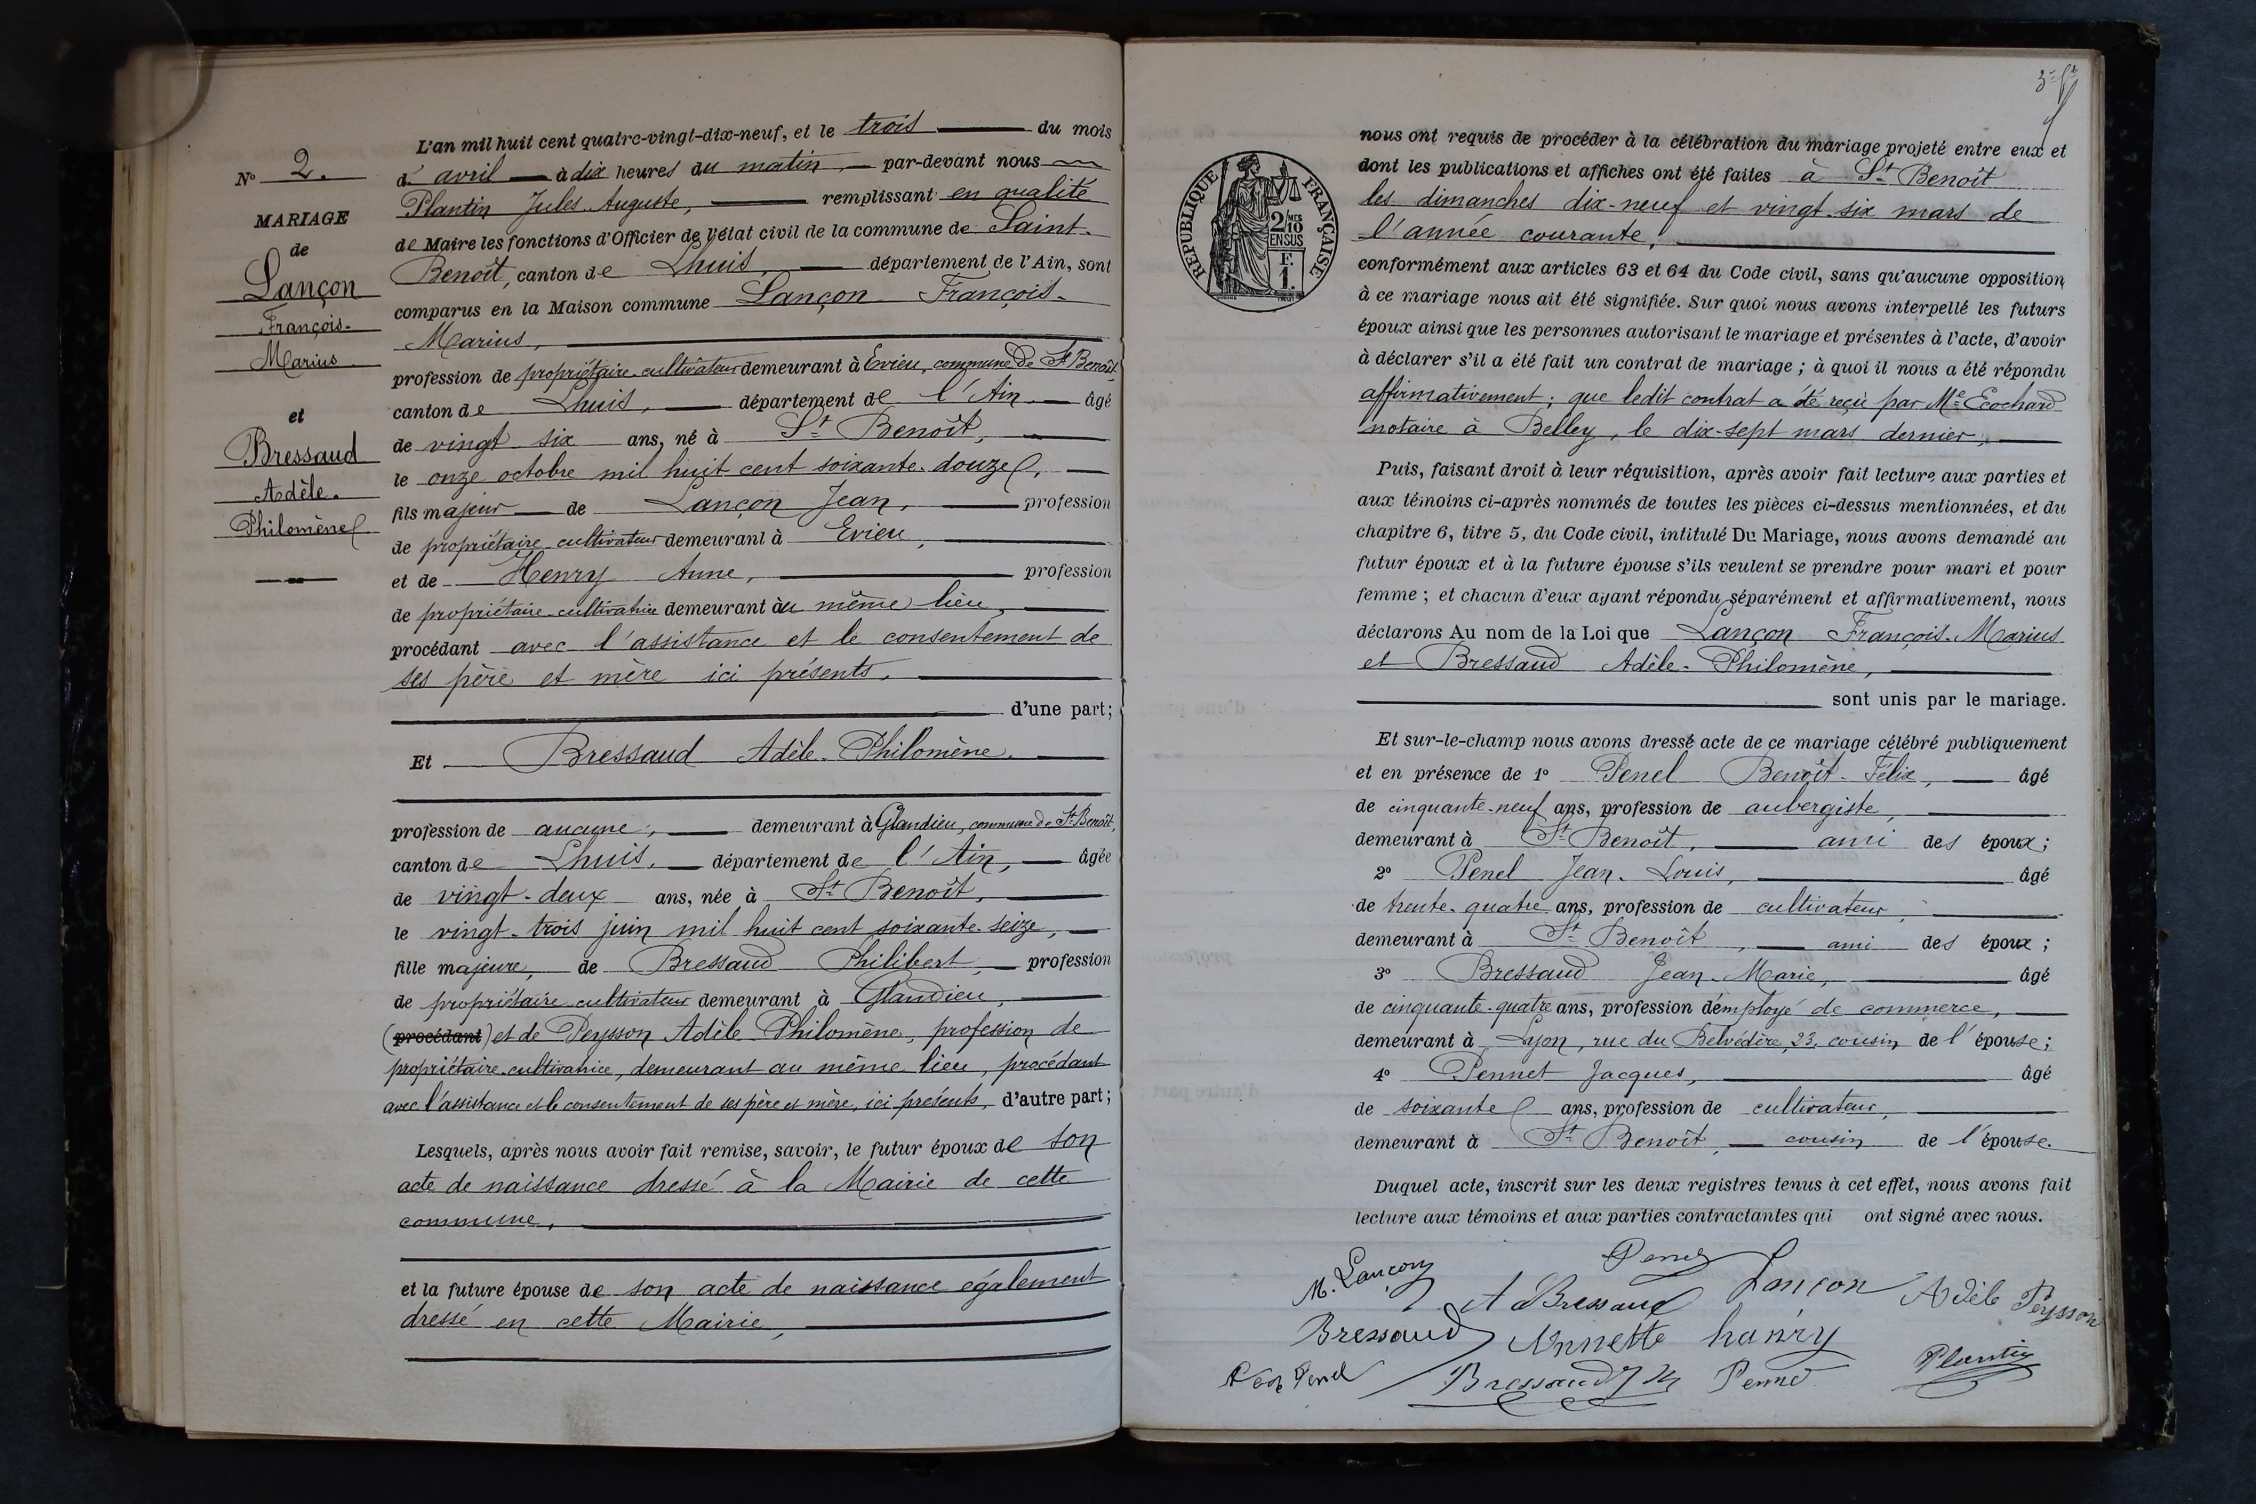 N° 2.
MARIAGE
de
Lançon
François-
Marius
et
Bressaud
Adèle-
Philomène
L'an mil huit cent quatre-vingt-dix-neuf, et le trois du mois
d'avril à dix heures du matin, par-devant nous
Plantin Jules Auguste, remplissant en qualité
de Maire les fonctions d'Officier de l'état civil de la commune de Saint-
Benoît, canton de Lhuis, département de l'Ain, sont
comparus en la Maison commune Lançon François-
Marius,
profession de propriétaire-cultivateur demeurant à Evieu, commune de St Benoît,
canton de Lhuis, département de l'Ain âgé
de vingt six ans, né à St Benoît,
le onze octobre mil huit cent soixante-douze,
fils majeur de Lançon Jean, profession
de propriétaire-cultivateur demeurant à Evieu,
et de Henry Anne, profession
de propriétaire-cultivatrice demeurant au même lieu,
procédant avec l'assistance et le consentement de
ses père et mère ici présents,
d'une part;
Et Bressaud Adèle-Philomène,
profession de aucune, demeurant à Glandieu, commune de St Benoît,
canton de Lhuis, département de l'Ain, âgée
de vingt-deux ans, née à St Benoît,
le vingt-trois juin mil huit cent soixante-seize,
fille majeure, de Bressaud Philibert, profession
de propriétaire-cultivateur demeurant à Glandieu,
(procédant) et de Peysson Adèle-Philomène, profession de
propriétaire-cultivatrice, demeurant au même lieu, procédant
avec l'assistance et le consentement de ses père et mère, ici présents, d'autre part;
Lesquels, après nous avoir fait remise, savoir, le futur époux de son
acte de naissance dressé à la Mairie de cette
commune,
et la future épouse de son acte de naissance également
dressé en cette Mairie,
RÉPUBLIQUE FRANÇAISE
2/10 MES
EN SUS
F.
1.
nous ont requis de procéder à la célébration du mariage projeté entre eux et
dont les publications et affiches ont été faites à St Benoît
les dimanches dix-neuf et vingt-six mars de
l'année courante,
conformément aux articles 63 et 64 du Code civil, sans qu'aucune opposition
à ce mariage nous ait été signifiée. Sur quoi nous avons interpellé les futurs
époux ainsi que les personnes autorisant le mariage et présentes à l'acte, d'avoir
à déclarer s'il a été fait un contrat de mariage; à quoi il nous a été répondu
affirmativement; que ledit contrat a été reçu par Me Ecochard
notaire à Belley, le dix-sept mars dernier,
Puis, faisant droit à leur réquisition, après avoir fait lecture aux parties et
aux témoins ci-après nommés de toutes les pièces ci-dessus mentionnées, et du
chapitre 6, titre 5, du Code civil, intitulé Du Mariage, nous avons demandé au
futur époux et à la future épouse s'ils veulent se prendre pour mari et pour
femme; et chacun d'eux ayant répondu séparément et affirmativement, nous
déclarons Au nom de la Loi que Lançon François-Marius
et Bressaud Adèle-Philomène,
sont unis par le mariage.
Et sur-le-champ nous avons dressé acte de ce mariage célébré publiquement
et en présence de 1° Penel Benoît-Félix, âgé
de cinquante-neuf ans, profession de aubergiste,
demeurant à St Benoît, ami des époux;
2° Penel Jean-Louis, âgé
de trente-quatre ans, profession de cultivateur,
demeurant à St Benoît, ami des époux;
3° Bressaud Jean-Marie, âgé
de cinquante-quatre ans, profession d'employé de commerce,
demeurant à Lyon, rue du Belvédère, 23, cousin de l'épouse;
4° Pennet Jacques, âgé
de soixante ans, profession de cultivateur,
demeurant à St Benoît, cousin de l'épouse.
Duquel acte, inscrit sur les deux registres tenus à cet effet, nous avons fait
lecture aux témoins et aux parties contractantes qui ont signé avec nous.
M. Lançon
Penel
A Bressaud
Lançon
Adèle Peysson
Bressaud
Annette hanry
Plantin
Penel
Bressaud J M
Pennet